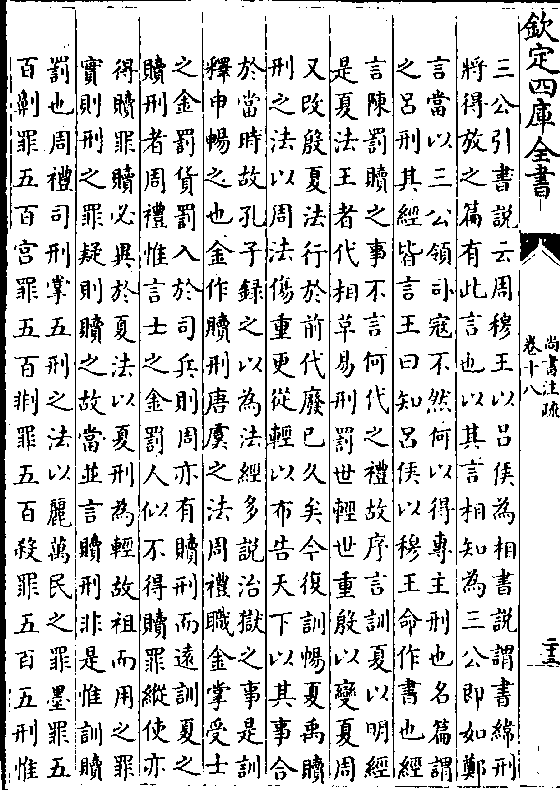 欽定四庫全書
尚書注疏
卷十八
二十三
三公引書説云周穆王以吕侯為相書説謂書緯刑
將得放之篇有此言也以其言相知為三公即如鄭
言當以三公領司寇不然何以得專主刑也名篇謂
之吕刑其經皆言王曰知吕侯以穆王命作書也經
言陳罰贖之事不言何代之禮故序言訓夏以明經
是夏法王者代相革易刑罰世輕世重殷以變夏周
又改殷夏法行於前代廢已久矣今復訓暢夏禹贖
刑之法以周法傷重更從輕以布告天下以其事合
於當時故孔子録之以為法經多説治獄之事是訓
釋申暢之也金作贖刑唐虞之法周禮職金掌受士
之金罰貨罰入於司兵則周亦有贖刑而遠訓夏之
贖刑者周禮惟言士之金罰人似不得贖罪縱使亦
得贖罪贖必異於夏法以夏刑為輕故祖而用之罪
實則刑之罪疑則贖之故當並言贖刑非是惟訓贖
罰也周禮司刑掌五刑之法以麗萬民之罪墨罪五
百劓罪五百宫罪五百剕罪五百殺罪五百五刑惟